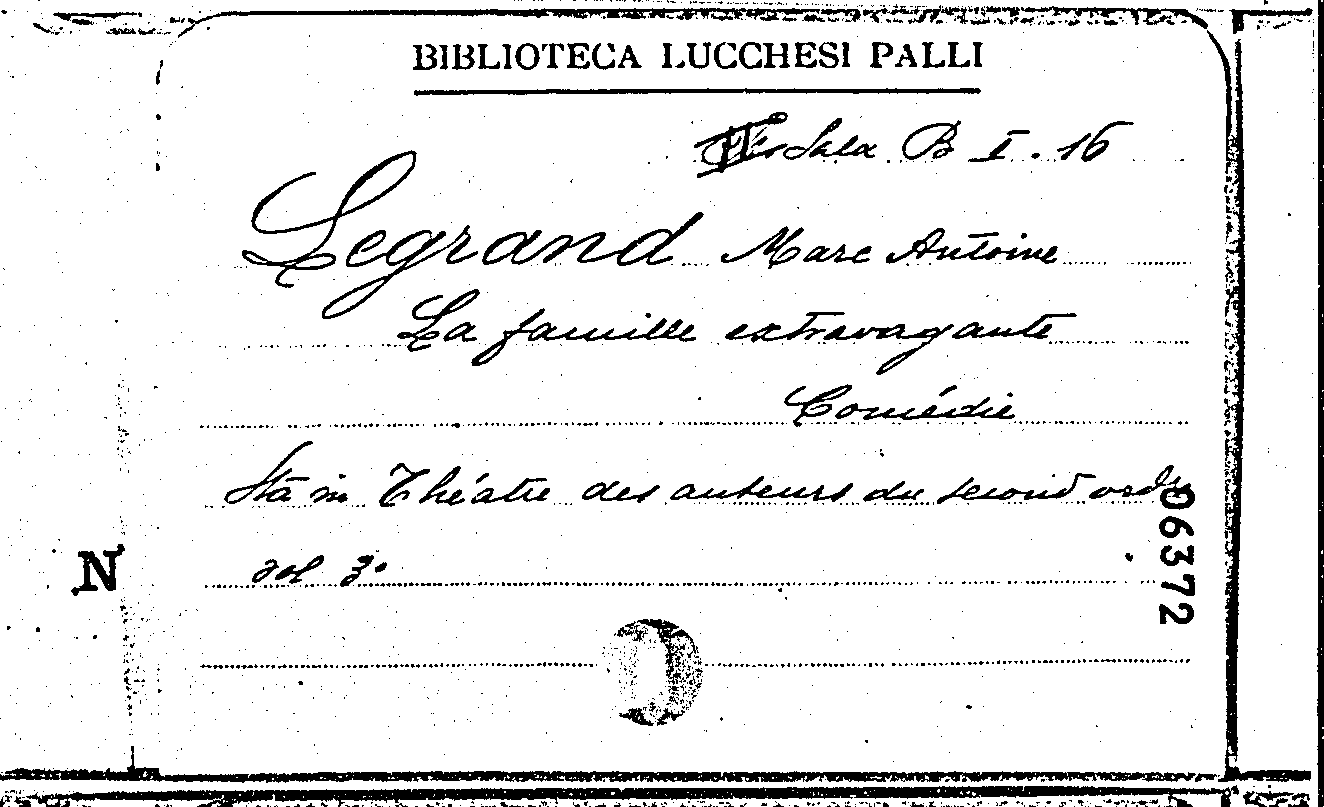 BIBLIOTECA LUCCHESI PALLI
Sala B I. 16
Legrand Marc Antoine
La famille extravagante
Comédie
Stà in Théatre des auteurs du second ordre
vol 3°
N
06372